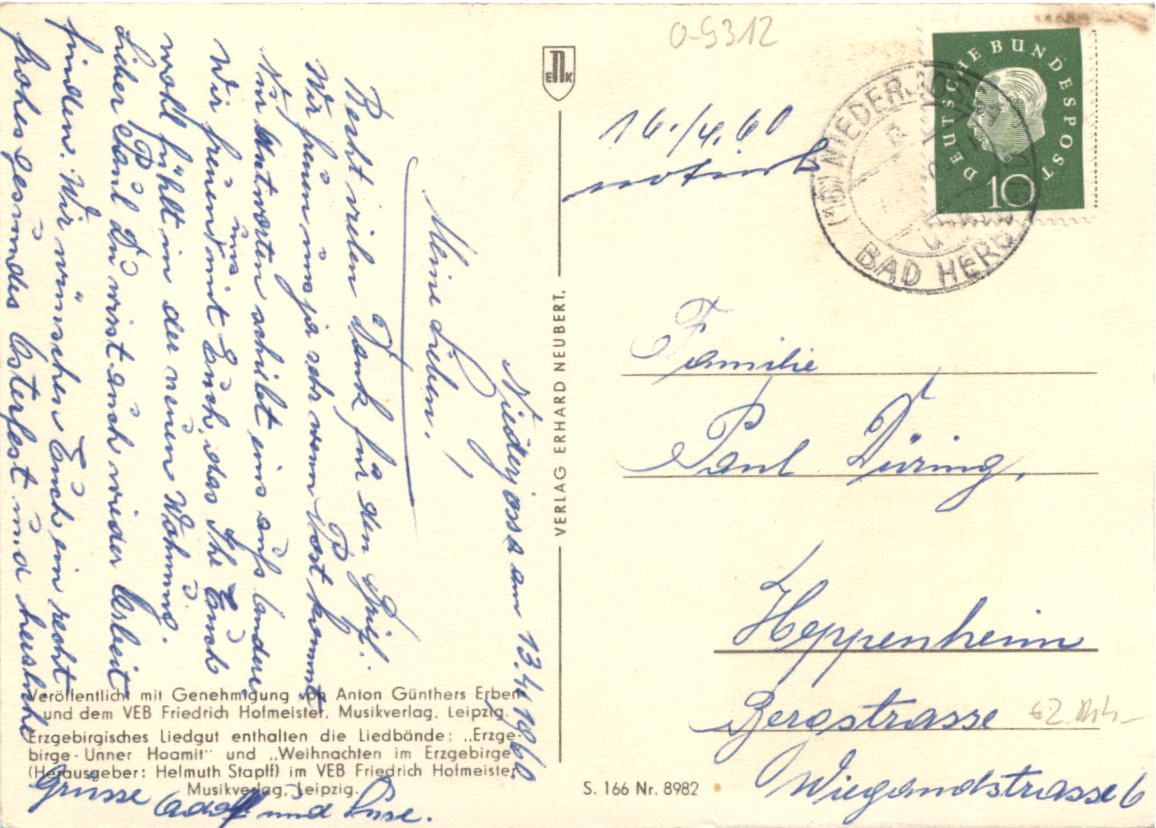 O-5312
ENK
16./4.60
notiert
(16) NIEDERJOSSA
BAD HERS
DEUTSCHE BUNDESPOST
10
Niederjossa am 13.4.1960
Meine Lieben!
Recht vielen Dank für den Brief.
Wir freuen uns ja sehr wenn Post kommt
Nur Antworten schiebt eins aufs andere
uns
Wir freuen mit Euch, das Ihr Euch
wohl fühlt in der neuen Wohnung.
Lieber Paul Du wirst auch wieder Arbeit
finden. Wir wünschen Euch ein recht
frohes gesundes Osterfest und herzliche
Grüsse Adolf und Luse.
VERLAG ERHARD NEUBERT.
Familie
Paul Düring,
Heppenheim
Bergstrasse
Wiegandstrasse 6
Veröffentlicht mit Genehmigung von Anton Günthers Erben
und dem VEB Friedrich Hofmeister, Musikverlag, Leipzig.
Erzgebirgisches Liedgut enthalten die Liedbände: „Erzge-
birge-Unner Haamit" und „Weihnachten im Erzgebirge"
(Herausgeber: Helmuth Stapff) im VEB Friedrich Hofmeister
Musikverlag, Leipzig.
S. 166 Nr. 8982